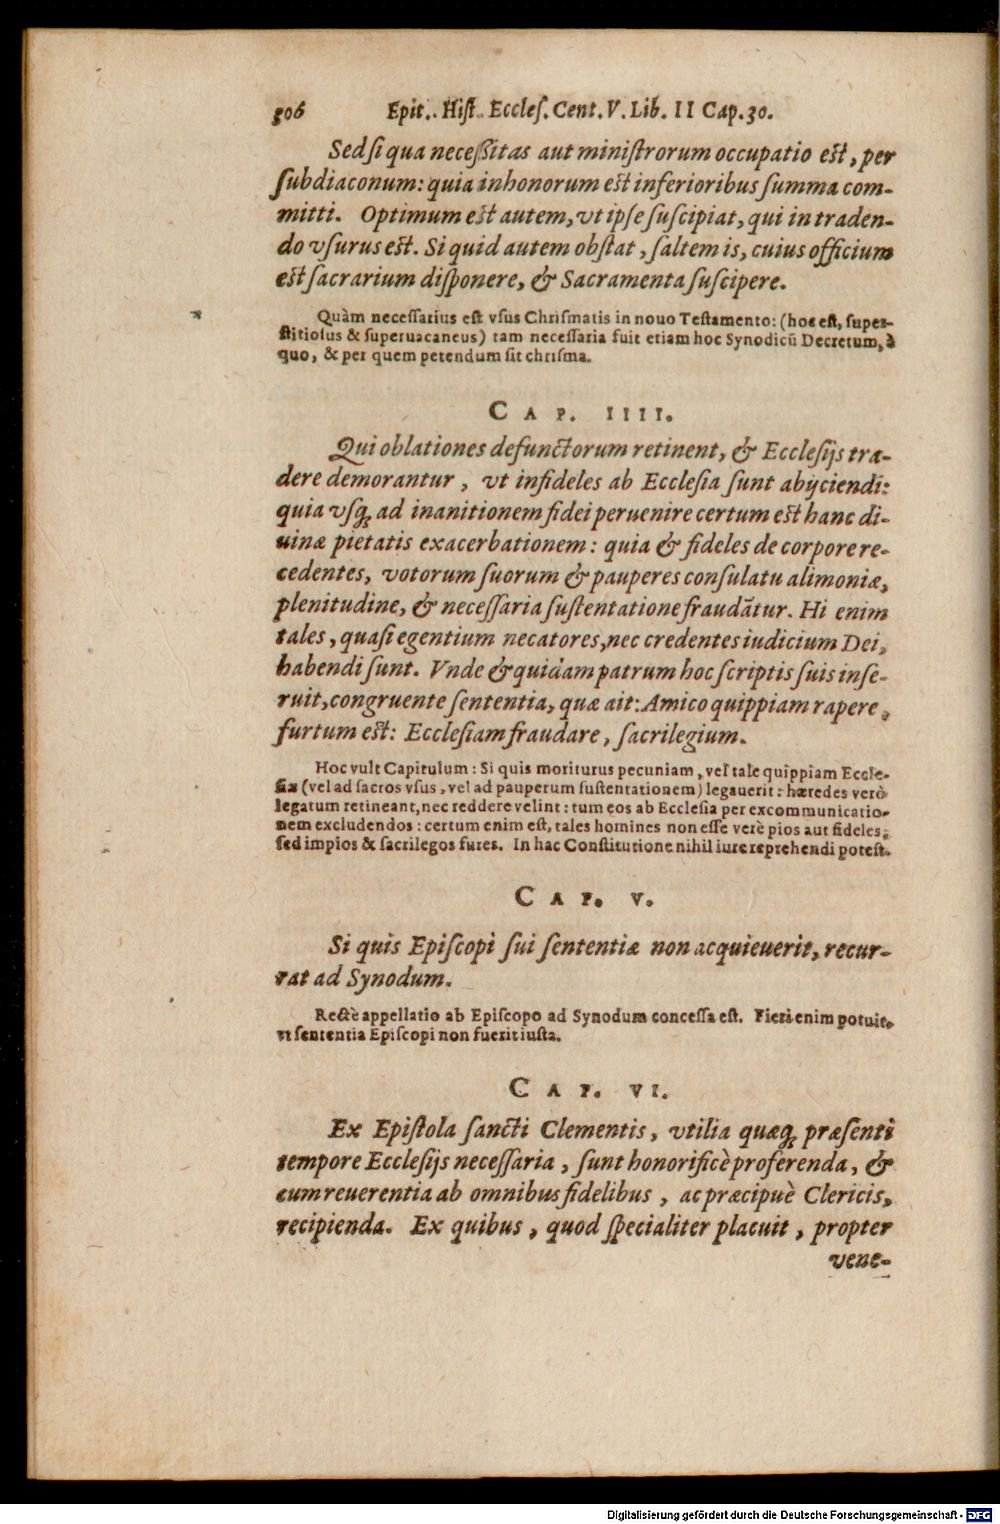 306 Epit. Hist. Eccles. Cent. V. Lib. II Cap. 30.
Sed si qua necessitas aut ministrorum occupatio est, per
subdiaconum: quia inhonorum est inferioribus summa com-
mitti. Optimum est autem, vt ipse suscipiat, qui in traden-
do vsurus est. Si quid autem obstat, saltem is, cuius officium
est sacrarium disponere, & Sacramenta suscipere.
Quàm necessarius est vsus Chrismatis in nouo Testamento: (hoc est, super-
stitiosus & superuacaneus) tam necessaria fuit etiam hoc Synodicū Decretum, à
quo, & per quem petendum sit chrisma.
CAP. IIII.
Qui oblationes defunctorum retinent, & Ecclesijs tra-
dere demorantur, vt infideles ab Ecclesia sunt abijciendi:
quia vsq; ad inanitionem fidei peruenire certum est hanc di-
uinæ pietatis exacerbationem: quia & fideles de corpore re-
cedentes, votorum suorum & pauperes consulatu alimoniæ,
plenitudine, & necessaria sustentatione fraudātur. Hi enim
tales, quasi egentium necatores, nec credentes iudicium Dei,
habendi sunt. Vnde & quidam patrum hoc scriptis suis inse-
ruit, congruente sententia, quæ ait: Amico quippiam rapere,
furtum est: Ecclesiam fraudare, sacrilegium.
Hoc vult Capitulum: Si quis moriturus pecuniam, vel tale quippiam Eccle-
siæ (vel ad sacros vsus, vel ad pauperum sustentationem) legauerit: hæredes verò
legatum retineant, nec reddere velint: tum eos ab Ecclesia per excommunicatio-
nem excludendos: certum enim est, tales homines non esse verè pios aut fideles,
sed impios & sacrilegos fures. In hac Constitutione nihil iure reprehendi potest.
CAP. V.
Si quis Episcopi sui sententiæ non acquieuerit, recur-
rat ad Synodum.
Rectè appellatio ab Episcopo ad Synodum concessa est. Fieri enim potuit,
vt sententia Episcopi non fuerit iusta.
CAP. VI.
Ex Epistola sancti Clementis, vtilia quæq; præsenti
tempore Ecclesijs necessaria, sunt honorificè proferenda, &
cum reuerentia ab omnibus fidelibus, ac præcipuè Clericis,
recipienda. Ex quibus, quod specialiter placuit, propter
vene-
Digitalisierung gefördert durch die Deutsche Forschungsgemeinschaft - DFG